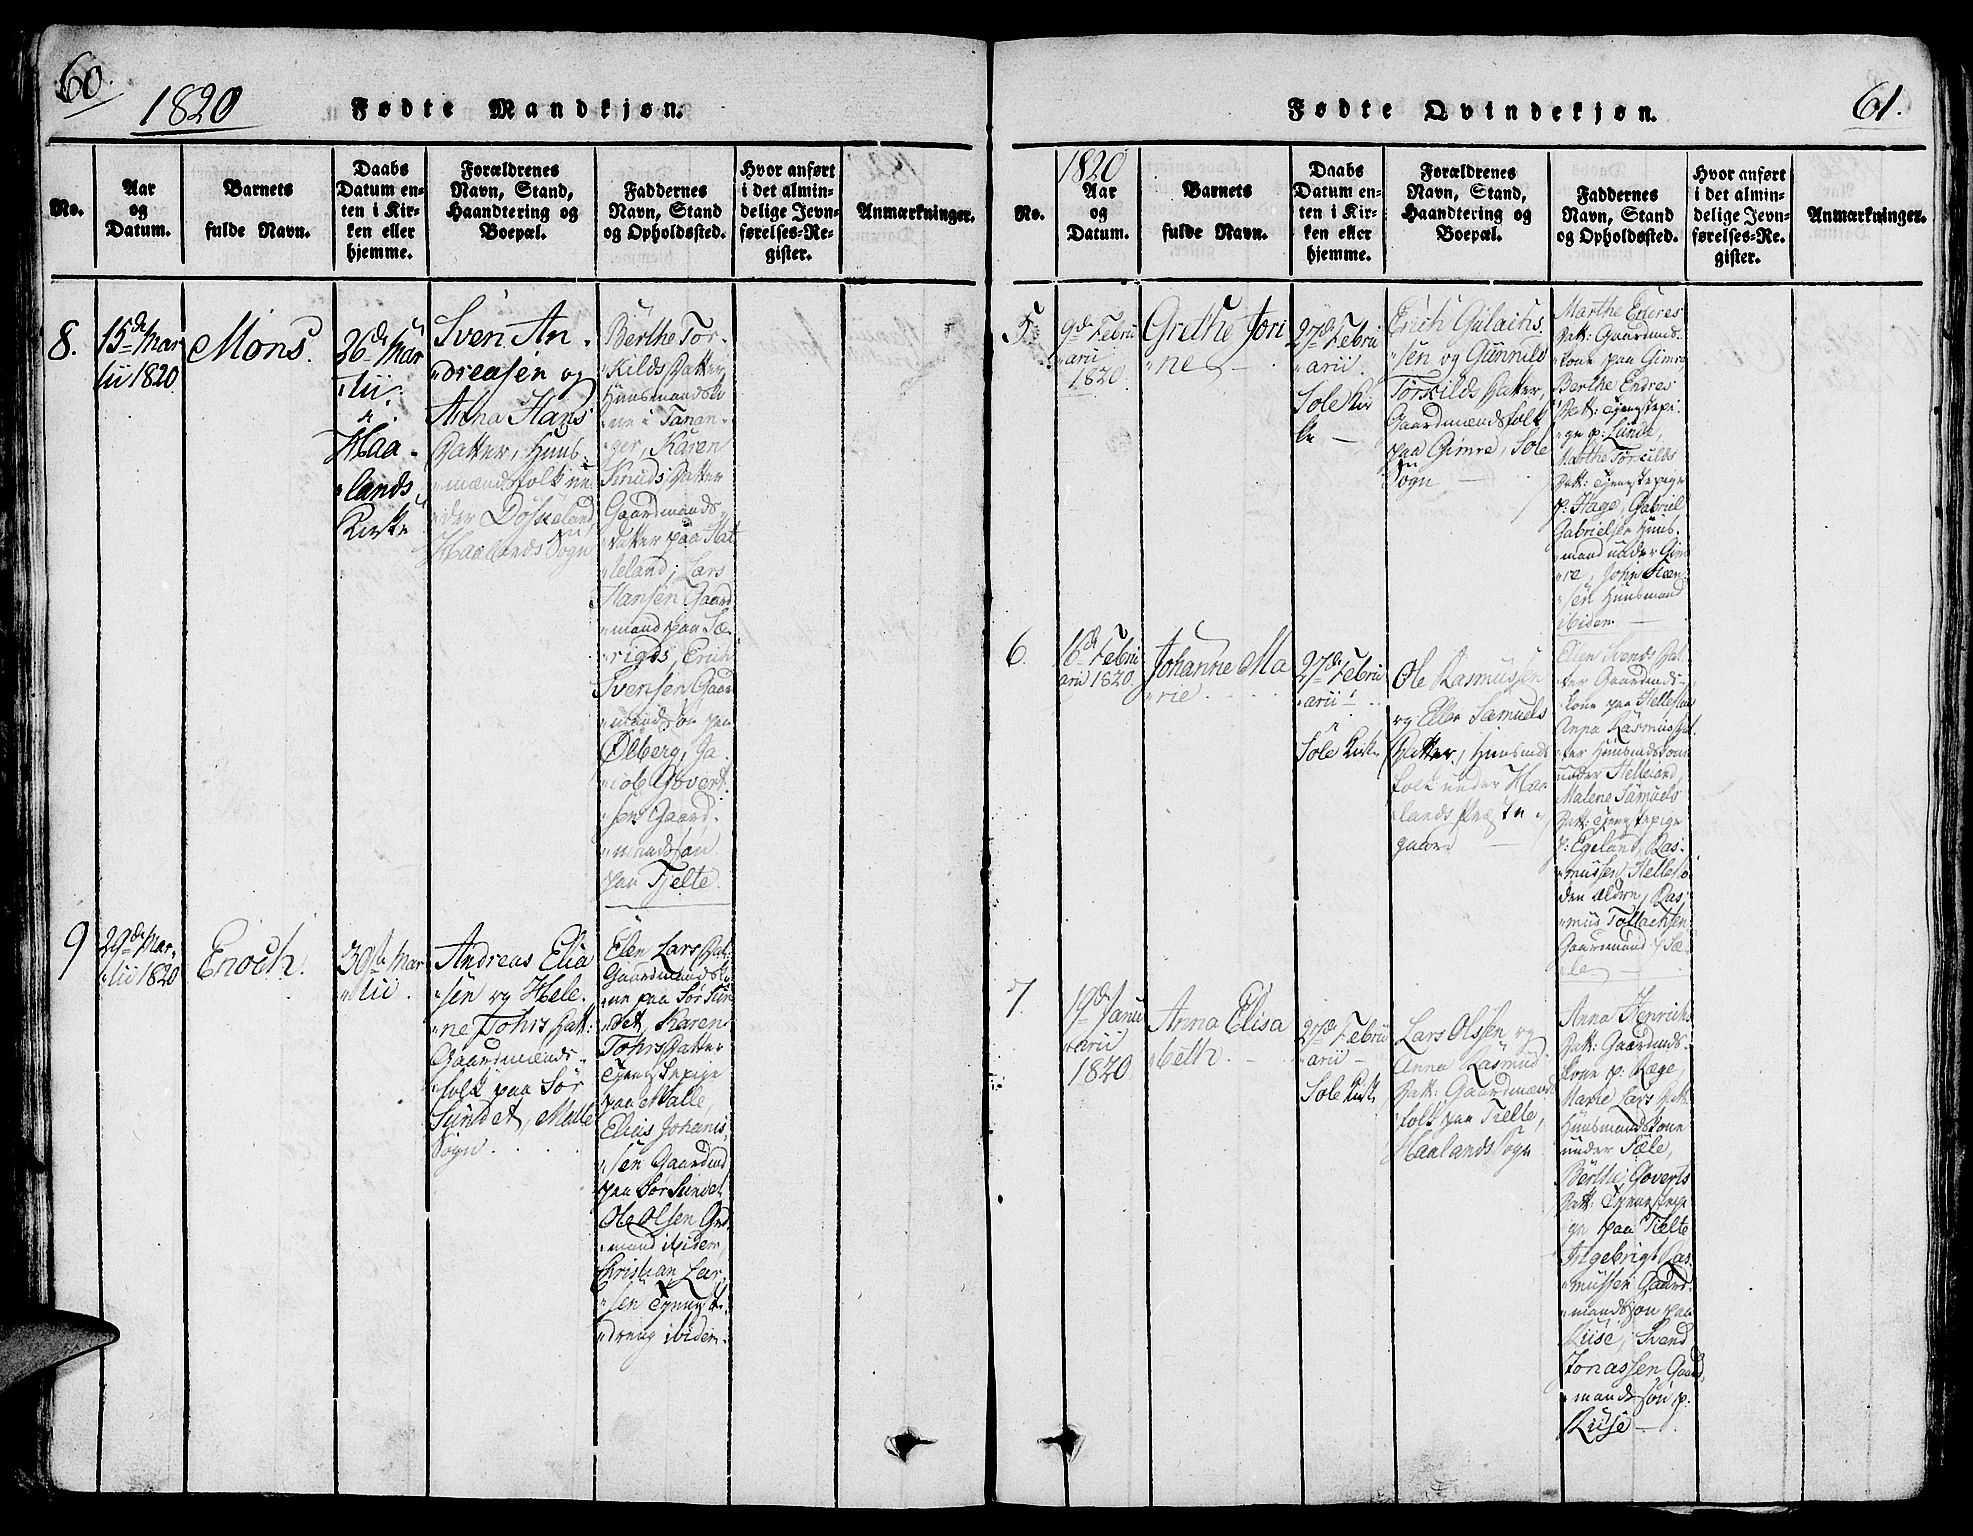 60.
1820
Fødte Mandkjøn.
No.
Aar
og
Datum.
Barnets
fulde Navn.
Daabs
Datum en-
ten i Kir-
ken eller
hjemme.
Forældrenes
Navn, Stand,
Haandtering og
Boepæl.
Faddernes
Navn, Stand
og Opholdssted.
Hvor anført
i det almin-
delige Jevn-
førelses-Re-
gister.
Anmærkninger.
8.
15de Mar
tii 1820
Mons.
26de Mar
tii.
Haa-
lands
Kirke
Sven An-
dreasen og
Anna Hans
Datter, Huus-
mændsfolk un
der
Haalands Sogn
Berthe Tor-
kilds Datter
Huusmandsko
ne i Tanan-
ger, Karen
Knuds Datter
Gaardmands
datter paa Hat
leland, Lars
Hansen Gaard
mand paa Sæ-
rigds, Erich
Svensen Gaar
mandsøn paa
Ølberg, Ja-
cob Govert
sen Gaard-
mandsøn
paa Tjelte.
9
29de Mar-
tii 1820
Enoch.
30te Mar
tii.
Andreas Elia
sen og Hele-
ne Tohrs Datt:
Gaardmænds-
folk paa Sør
Sundet, Malle
Sogn.
Elen Lars Dat:
Gaardmandsko
ne paa Sør Sun
det, Karen
Tohrs Datter
Tjenestepige
paa Malle,
Elias Johanis
sen Gaardmd
paa Sør Sundet
Ole Olsen Grd
mand ibidem,
Christian Lar
sen Tjeneste
dreng ibidem.
61.
Fødte Qvindekjøn.
No.
1820
Aar
og
Datum.
Barnets
fulde Navn.
Daabs
Datum en-
ten i Kir-
ken eller
hjemme.
Forældrenes
Navn, Stand,
Haandtering og
Boepæl.
Faddernes
Navn, Stand
og Opholdssted.
Hvor anført
i det almin-
delige Jevn-
førelses-Re-
gister.
Anmærkninger.
5.
9de Febru
arii
1820.
Grethe Jori
ne
27de Febru
arii.
Sole Kir
ke
Erich Gulachs
sen og Gunnild
Torkilds Datter,
Gaardmændsfolk
paa Gimre, Sole
Sogn
Marthe Endres
Datt: Gaardmds-
kone paa Gimre
Berthe Endres
Datt: Tjenestepi
ge p: Lunde,
Marthe Torkilds
Datt: Tjenestepige
p: Hage, Gabriel
Gabrielsen Huus-
mand under Gim
re, John
sen Huusmand
ibidem
6.
16de Febru
arii 1820
Johanne Ma
rie
27de Febru
arii
Sole Kirke
Ole Rasmussen
og Ellen Samuels
Datter, Huusmds
folk under Haa
lands Præste
gaard
Ellen Svends Dat
ter Gaardmds-
kone paa
Anna Rasmus Dat
ter Huusmdskone
under
Malene Samuels
Datt: Tjenestepige
p: Egeland, Ras-
mussen
den ældre, Ras
mus Tollachsen
Gaardmand p: Sæ
le
7.
19de Janu
arii
1820
Anna Elisa
beth.
27de Febru
arii
Sole Kirke
Lars Olssen og
Anna Rasmus
Datt: Gaardmænds
folk paa Tjelte,
Haalands Sogn
Anna Henrichs
Datt: Gaardmds-
kone p: Ræge,
Marie Lars Datt
Huusmandskone
under Sæle,
Berthe Goverts
Datt: Tjenestepige
ge paa Tjelte
Ingebrigt Ras
mussen Gaard-
mandsøn paa
Riise, Svend
Jonassen Gaard
mandsøn p.
Riise